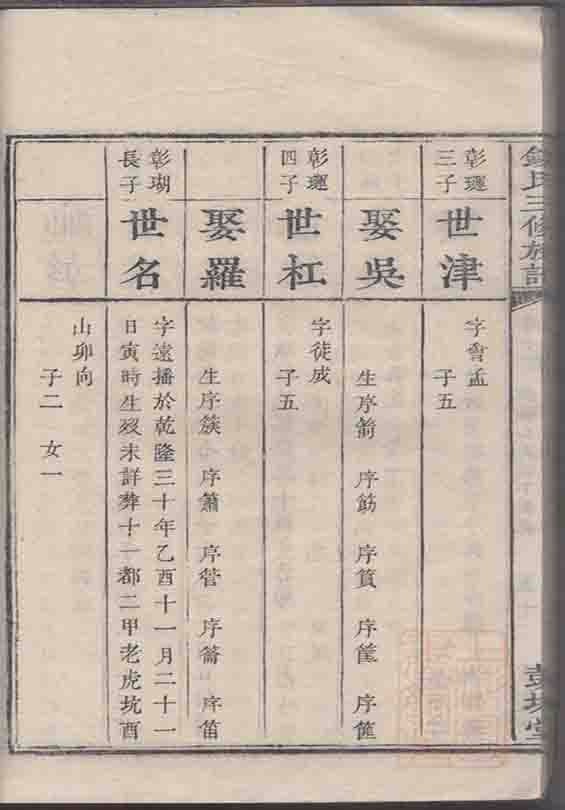 錢氏三修族譜
彭城堂
彰璭三子
世津
字會孟
子五
娶吳
生序箭 序筯 序篔 序筐 序篚
彰璭四子
世杠
字徒成
子五
娶羅
生序簇 序簫 序管 序籥 序笛
彰瑚長子
世名
字遠播於乾隆三十年乙酉十一月二十一
日寅時生歿未詳葬十一都二甲老虎坑酉
山卯向
子二 女一